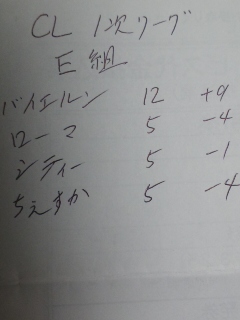 CL 1次リーグ
E組
バイエルン 12 +9
ローマ 5 -4
シティー 5 -1
ちぇすか 5 -4